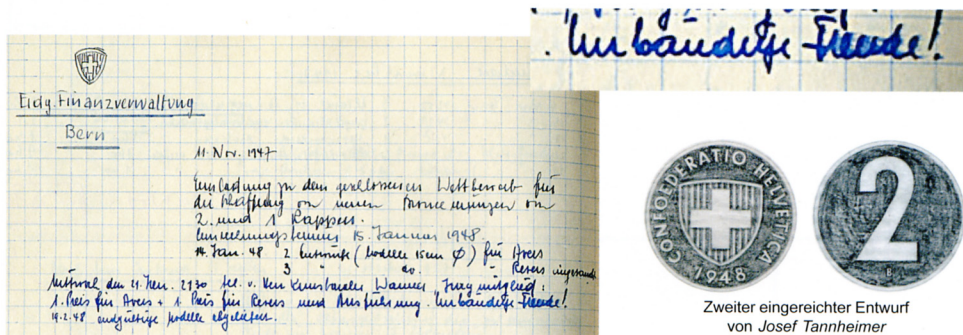 Eidg. Finanzverwaltung
Bern
11. Nov. 1947
Einladung zu dem geschlossenen Wettbewerb für
die Schaffung von neuen Bronzemünzen von
2 und 1 Rappen.
Einreichungstermin 15. Januar 1948
14. Jan. 48 2 Entwürfe (Modelle 15cm Ø) für Avers
3 " do. " Revers eingesandt
Mittwoch den 21. Jan. 2130 tel. v. Herr Kunstmaler Wanner, Jurymitglied:
1. Preis für Avers + 1. Preis für Revers und Ausführung. Unbändige Freude!
19.2.48 endgültige Modelle abgeliefert.
Unbändige Freude!
CONFOEDERATIO HELVETICA
1948
2
B
Zweiter eingereichter Entwurf
von Josef Tannheimer